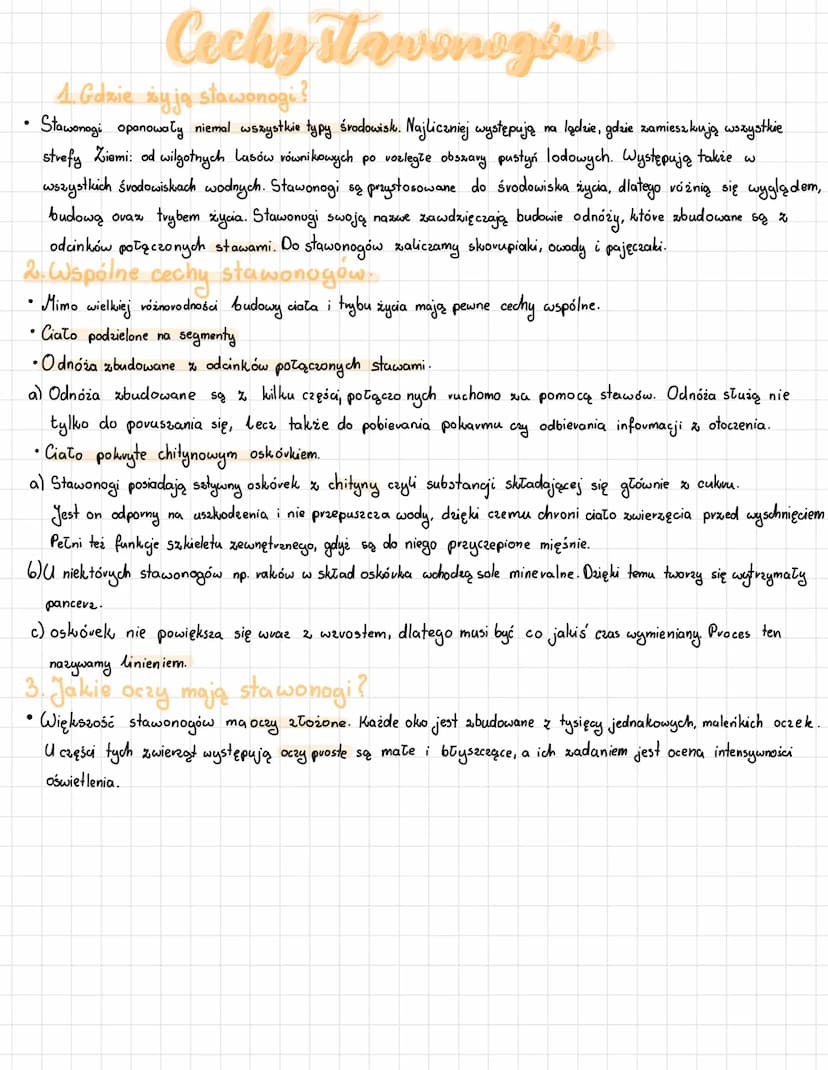 Cechy stawonogów
1. Gdzie żyją stawonogi?
• Stawonogi opanowały niemal wszystkie typy środowisk. Najliczniej występują na lądzie, gdzie zamieszkują wszystkie
strefy Ziemi: od wilgotnych lasów równikowych po rozległe obszary pustyń lodowych. Występują także w
wszystkich środowiskach wodnych. Stawonogi są przystosowane do środowiska życia, dlatego różnią się wyglądem,
budową oraz trybem życia. Stawonogi swoją nazwe zawdzięczają budowie odnóży, które zbudowane są z
odcinków połączonych stawami. Do stawonogów zaliczamy skorupiaki, owady i pajęczaki.
2. Wspólne cechy stawonogów.
• Mimo wielkiej różnorodności budowy ciała i trybu życia mają pewne cechy wspólne.
• Ciało podzielone na segmenty
• Odnóża zbudowane z odcinków połączonych stawami.
a) Odnóża zbudowane są z kilku części, połączo nych ruchomo za pomocą stawów. Odnóża służą nie
tylko do poruszania się, lecz także do pobierania pokarmu czy odbierania informacji z otoczenia.
• Ciało pokryte chitynowym oskórkiem.
a) Stawonogi posiadają sztywny oskórek z chityny czyli substancji składającej się głównie z cukru.
Jest on odporny na uszkodzenia i nie przepuszcza wody, dzięki czemu chroni ciało zwierzęcia przed wyschnięciem
Pełni też funkcje szkieletu zewnętrznego, gdyż są do niego przyczepione mięśnie.
b) U niektórych stawonogów np. raków w skład oskórka wchodzą sole mineralne. Dzięki temu tworzy się wytrzymały
pancerz.
c) oskórek nie powiększa się wraz z wzrostem, dlatego musi być co jakiś czas wymieniany. Proces ten
nazywamy linieniem.
3. Jakie oczy mają stawonogi?
• Większość stawonogów ma oczy złożone. Każde oko jest zbudowane z tysięcy jednakowych, maleńkich oczek.
U części tych zwierząt występują oczy proste są małe i błyszczące, a ich zadaniem jest ocena intensywności
oświetlenia.